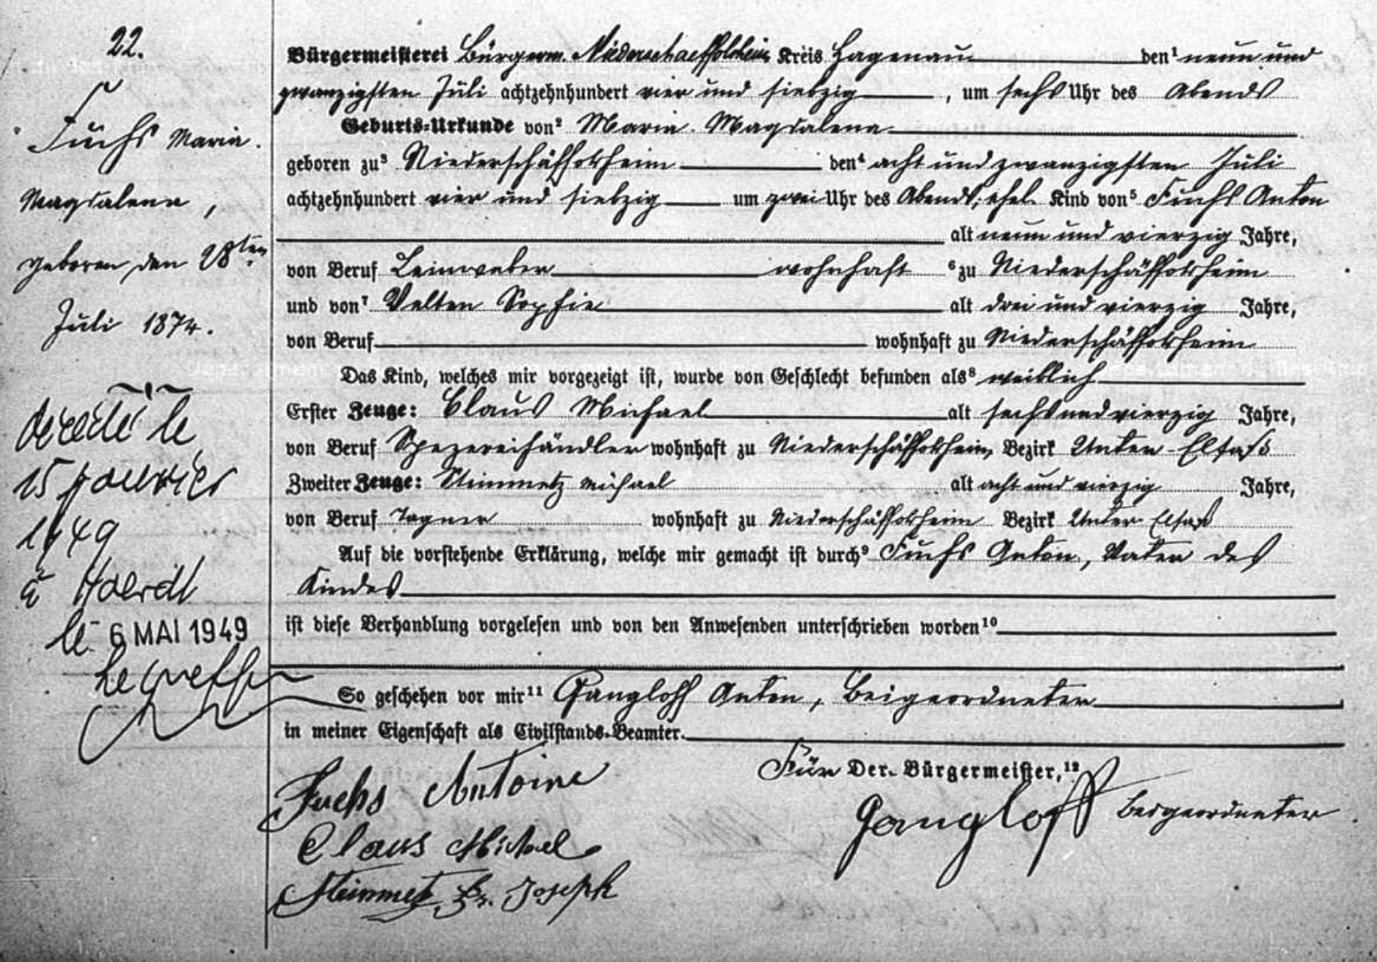 22.
Fuchs Maria.
Magdalena,
geboren den 28ten
Juli 1874.
décédé le
15 janvier
1949
à Hoerdt
le 6 MAI 1949
Bürgermeisterei Bürgerm. Niederschaeffolsheim Kreis Hagenau den¹ neun und
zwanzigsten Juli achtzehnhundert vier und siebzig, um sechs Uhr des Abends
Geburts-Urkunde von² Maria Magdalena
geboren zu³ Niederschäffolsheim den⁴ acht und zwanzigsten Juli
achtzehnhundert vier und siebzig um zwei Uhr des Abends; ehel. Kind von⁵ Fuchs Anton
alt neun und vierzig Jahre,
von Beruf Leinweber wohnhaft ⁶zu Niederschäffolsheim
und von⁷ Velten Sophie alt drei und vierzig Jahre,
von Beruf wohnhaft zu Niederschäffolsheim
Das Kind, welches mir vorgezeigt ist, wurde von Geschlecht befunden als⁸ weiblich
Erster Zeuge: Claus Michael alt sechs und vierzig Jahre,
von Beruf Spezereihändler wohnhaft zu Niederschäffolsheim, Bezirk Unter-Elsaß
Zweiter Zeuge: Steinmetz Michael alt acht und vierzig Jahre,
von Beruf Tagner wohnhaft zu Niederschäffolsheim Bezirk Unter-Elsaß
Auf die vorstehende Erklärung, welche mir gemacht ist durch⁹ Fuchs Anton, Vater des
Kindes
ist diese Verhandlung vorgelesen und von den Anwesenden unterschrieben worden¹⁰
So geschehen vor mir¹¹ Gangloff Anton, Beigeordneter
in meiner Eigenschaft als Civilstands-Beamter.
Für Der Bürgermeister,¹²
Gangloff Beigeordneter
Fuchs Antoine
Claus Michael
Steinmetz Joseph